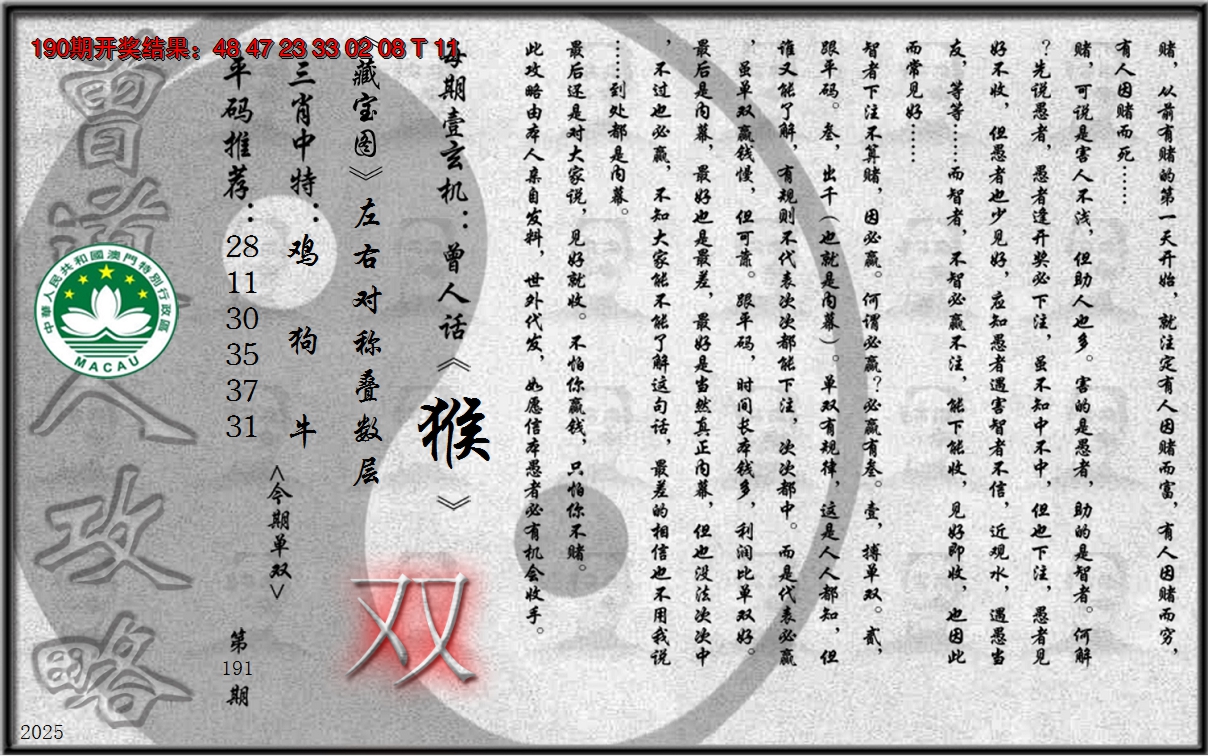 190期开奖结果：48 47 23 33 02 08 T 11
赌，从前有赌的第一天开始，就注定有人因赌而富，有人因赌而穷，
有人因赌而死……
赌，可说是害人不浅，但助人也多。害的是愚者，助的是智者。何解
？先说愚者，愚者逢开奖必下注，虽不知中不中，但也下注，愚者见
好不收，但愚者也少见好，应知愚者遇害智者不信，近观水，遇愚当
友，等等……而智者，不智必赢不注，能下能收，见好即收，也因此
而常见好……
智者下注不算赌，因必赢。何谓必赢？必赢有叁。壹，搏单双。贰，
跟平码。叁，出千（也就是内幕）。单双有规律，这是人人都知，但
谁又能了解，有规则不代表次次都能下注，次次都中。而是代表必赢
，虽单双赢钱慢，但可靠。跟平码，时间长本钱多，利润比单双好。
最后是内幕，最好也是最差，最好是当然真正内幕，但也没法次次中
，不过也必赢，不知大家能不能了解这句话，最差的相信也不用我说
……到处都是内幕。
最后还是对大家说，见好就收。不怕你赢钱，只怕你不赌。
此攻略由本人亲自发料，世外代发，如愿信本愚者必有机会收手。
每期壹玄机：曾人话《猴》
《藏宝图》左右对称叠数层
三肖中特：鸡 狗 牛
<今期单双>
双
平码推荐：28 11 30 35 37 31
第191期
曾道人攻略
中華人民共和國澳門特別行政區
MACAU
2025